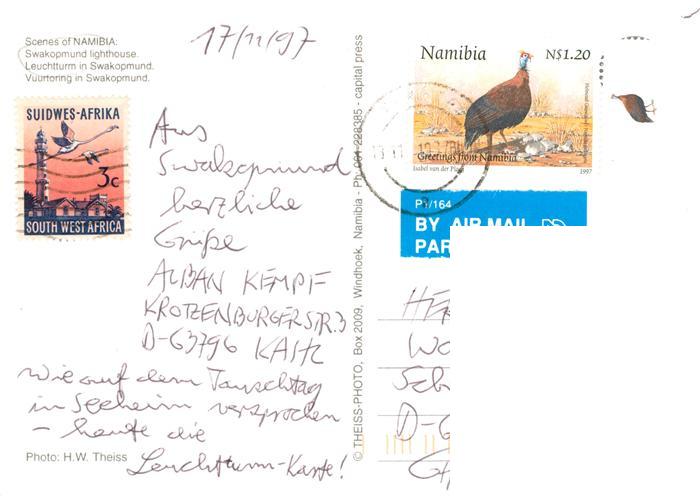 Scenes of NAMIBIA:
Swakopmund lighthouse.
Leuchtturm in Swakopmund.
Vuurtoring in Swakopmund.
17/11/97
SUIDWES-AFRIKA
3c
SOUTH WEST AFRICA
Aus
Swakopmund
herzliche
Grüße
ALBAN KEMPF
KROTZENBURGERSTR. 3
D-63796 KAHL
Wie auf dem Tauschtag
in Seeheim versprochen
- heute die
Leuchtturm-Karte!
Photo: H.W. Theiss
© THEISS-PHOTO, Box 2009, Windhoek, Namibia - Ph: 061-228385 - capital press
Namibia
N$1.20
Greetings from Namibia
Isabel van der Ploeg
1997
P1/164
BY AIR MAIL
PAR
HER
Wo
Sch
D-6